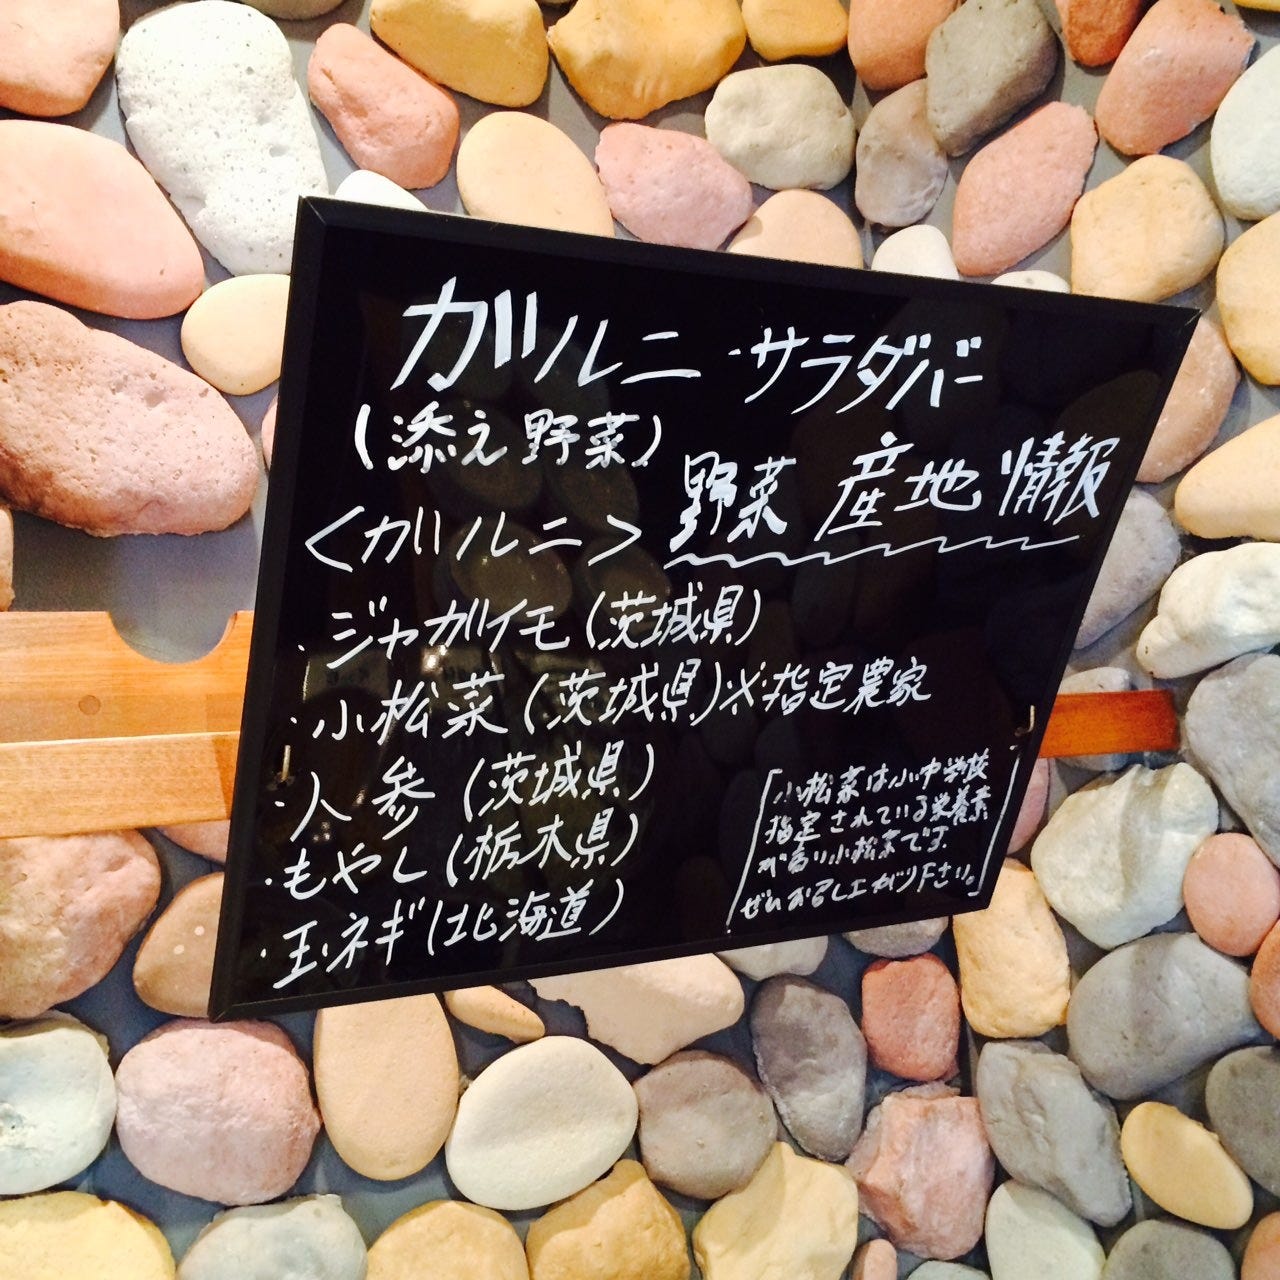 ガルニ・サラダバー
(添え野菜)
野菜 産地 情報
<ガルニ>
・ジャガイモ(茨城県)
・小松菜(茨城県)※指定農家
・人参(茨城県)
・もやし(栃木県)
・玉ネギ(北海道)
「小松菜は小中学校
指定されている栄養素
が高い小松菜です。
ぜひお召し上がり下さい。」